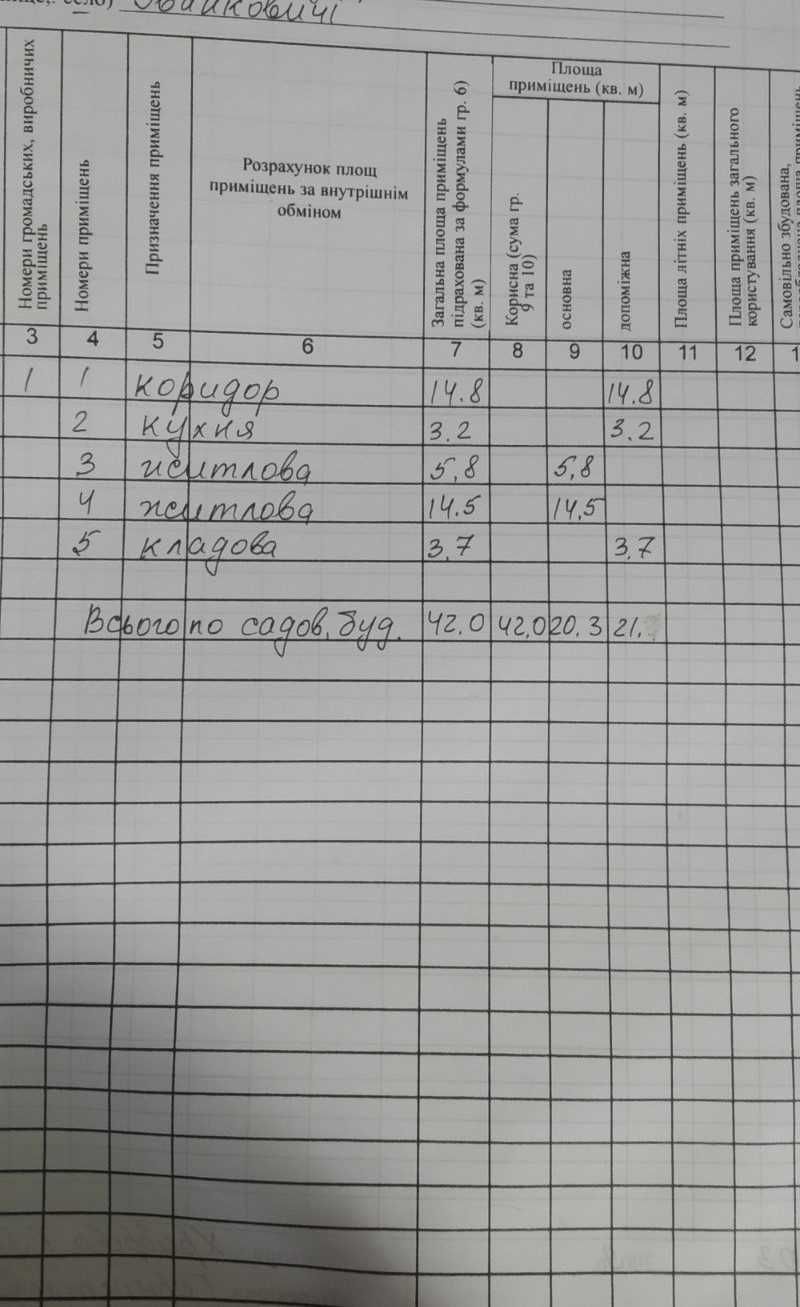 село)
Площа
приміщень (кв. м)
Номери громадських, виробничих
приміщень
Номери приміщень
Призначення приміщень
Розрахунок площ
приміщень за внутрішнім
обміном
Загальна площа приміщень
підрахована за формулами гр. 6)
(кв. м)
Корисна (сума гр.
9 та 10)
основна
допоміжна
Площа літніх приміщень (кв. м)
Площа приміщень загального
користування (кв. м)
Самовільно збудована,
3 4 5 6 7 8 9 10 11 12 1
1 1 коридор 14.8 14.8
2 кухня 3.2 3.2
3 житлова 5,8 5,8
4 житлова 14.5 14,5
5 кладова 3,7 3,7
Всього по садов. буд. 42.0 42,0 20.3 21.